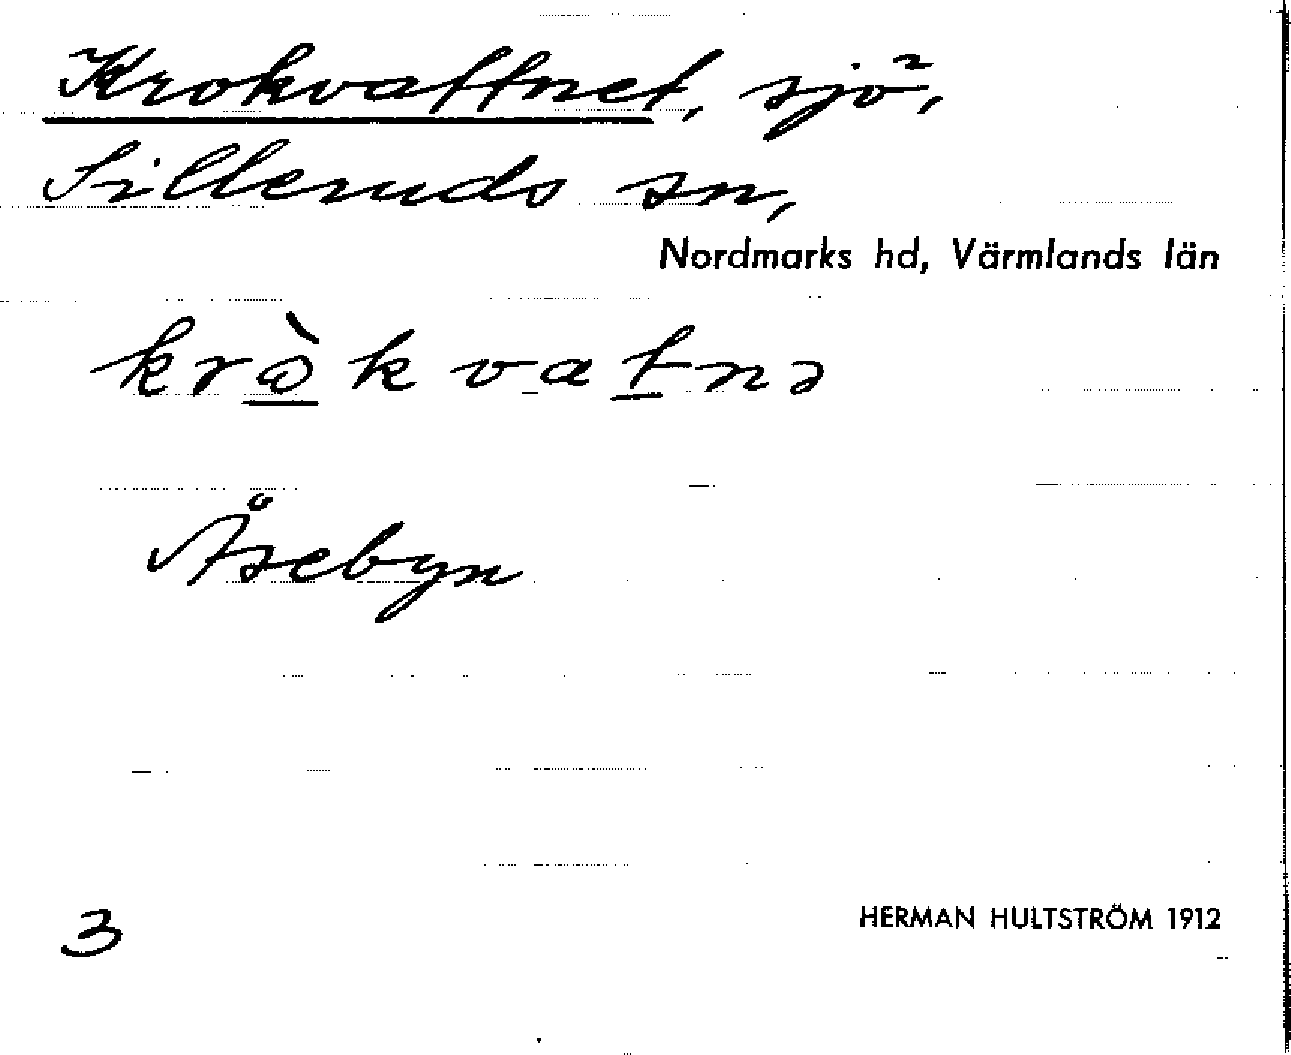 Krokvattnet, sjö,
Silleruds sn,
Nordmarks hd, Värmlands län
krɷ̀kvatnə
Åsebyn
3
HERMAN HULTSTRÖM 1912